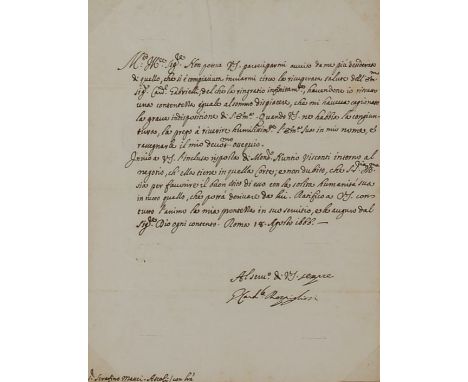 Non poteva V.S. parteciparmi avviso da me più desiderato
di quello, che si è compiaciuta inviarmi circa la ricuperata salute dell'Em.mo
Sig.r Card. Gabrielli; del che la ringratio infinitam.te, havendone io ricevuto
una contentezza eguale al sommo dispiacere, che mi haveva cagionato
la grave indisposizione di S. Em.za. Quando V.S. ne habbia la congiun-
tura, la prego à riverire humilissim.te S. Em.za in mio nome, e
rassegnarle il mio devot.mo ossequio.
Invio a V.S. l'inclusa risposta di Mons.r Nuntio Visconti intorno al
negotio, ch'ella tiene in quella Corte; e non dubito, che S.S. Ill.ma
sia per favorire il buon esito di esso con la solita humanità sua
in tutto quello, che potrà derivare da lui. Ratifico a V.S. con
tutto l'animo la mia prontezza in suo servitio, e le auguro dal
Sig.re Dio ogni contento. Roma 18. Agosto 1666.
Al serv.o di V.S. sempre
Il Card.le Rospigliosi
S. Serafino Mauri - Ascoli